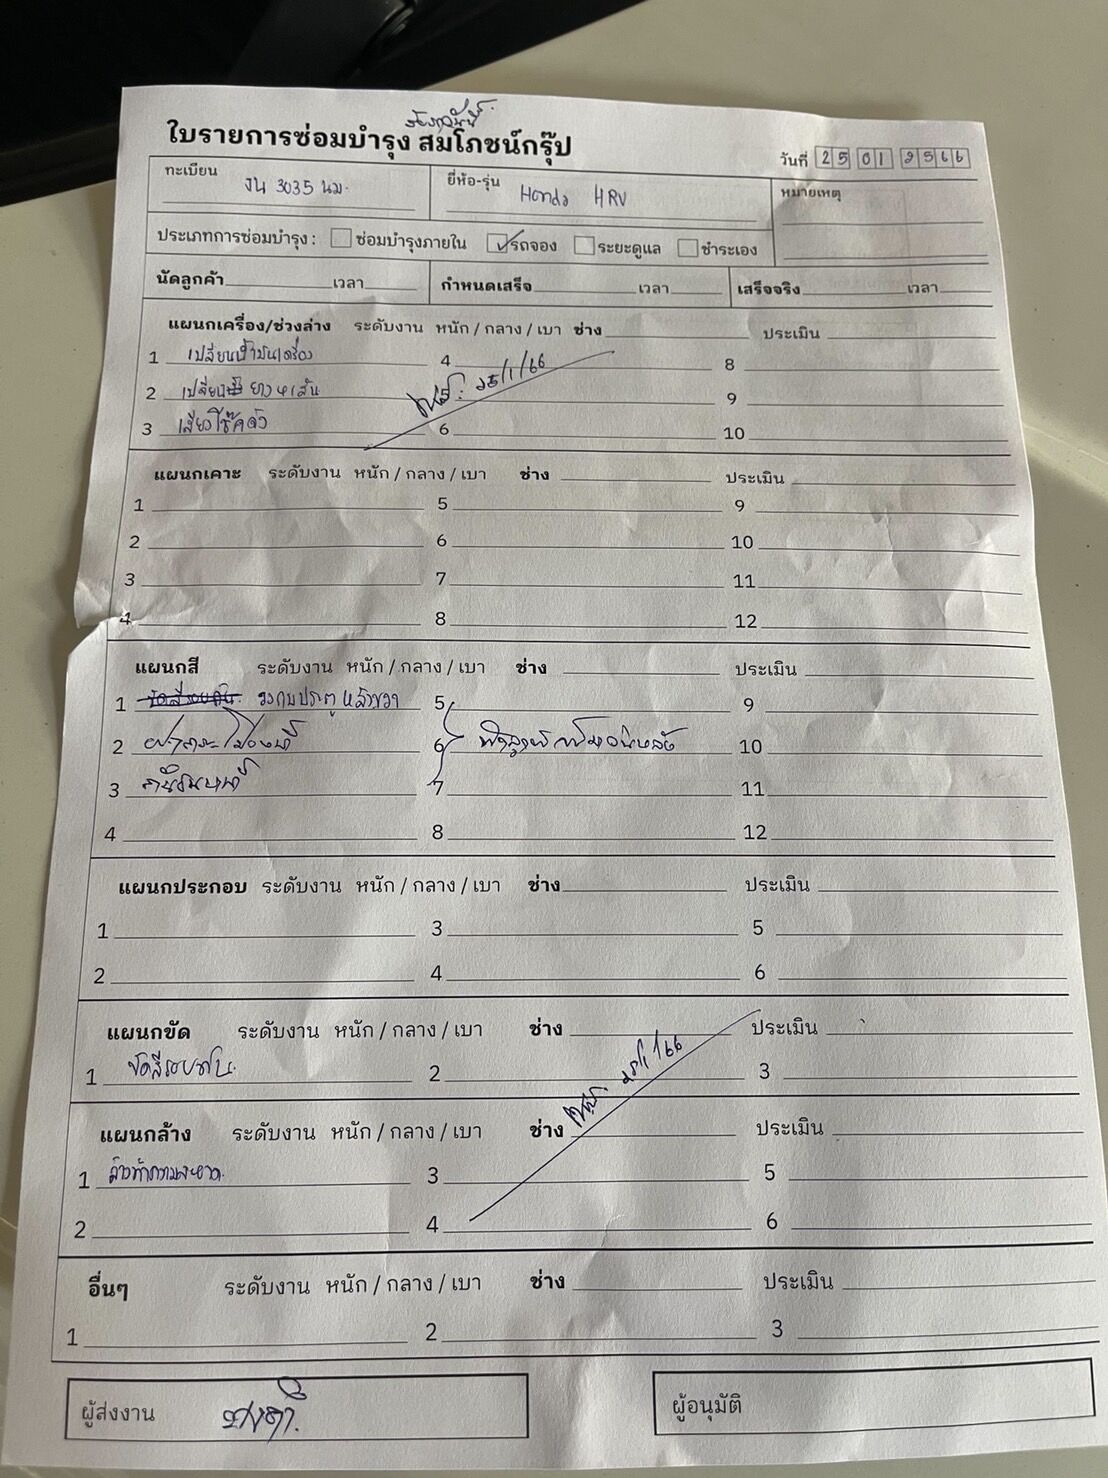 ต้องการวันนี้
ใบรายการซ่อมบำรุง สมโภชน์กรุ๊ป
วันที่ 25 01 2566
ทะเบียน งน 3035 นม.
ยี่ห้อ-รุ่น Honda HRV
หมายเหตุ
ประเภทการซ่อมบำรุง : ซ่อมบำรุงภายใน รถจอง ระยะดูแล ชำระเอง
นัดลูกค้า เวลา กำหนดเสร็จ เวลา เสร็จจริง เวลา
แผนกเครื่อง/ช่วงล่าง ระดับงาน หนัก / กลาง / เบา ช่าง ประเมิน
1 เปลี่ยนน้ำมันเครื่อง 4 8
2 เปลี่ยน ยาง 4 เส้น 5 25/1/66 9
3 เสียงโช๊คดัง 6 10
แผนกเคาะ ระดับงาน หนัก / กลาง / เบา ช่าง ประเมิน
1 5 9
2 6 10
3 7 11
4 8 12
แผนกสี ระดับงาน หนัก / กลาง / เบา ช่าง ประเมิน
1 ขัดสีรอบคัน ประตูหลังขวา 5 9
2 6 10
3 7 11
4 8 12
แผนกประกอบ ระดับงาน หนัก / กลาง / เบา ช่าง ประเมิน
1 3 5
2 4 6
แผนกขัด ระดับงาน หนัก / กลาง / เบา ช่าง ประเมิน
1 ขัดสีรอบคัน 2 25/1/66 3
แผนกล้าง ระดับงาน หนัก / กลาง / เบา ช่าง ประเมิน
1 ล้างทำความสะอาด 3 5
2 4 6
อื่นๆ ระดับงาน หนัก / กลาง / เบา ช่าง ประเมิน
1 2 3
ผู้ส่งงาน ผู้อนุมัติ